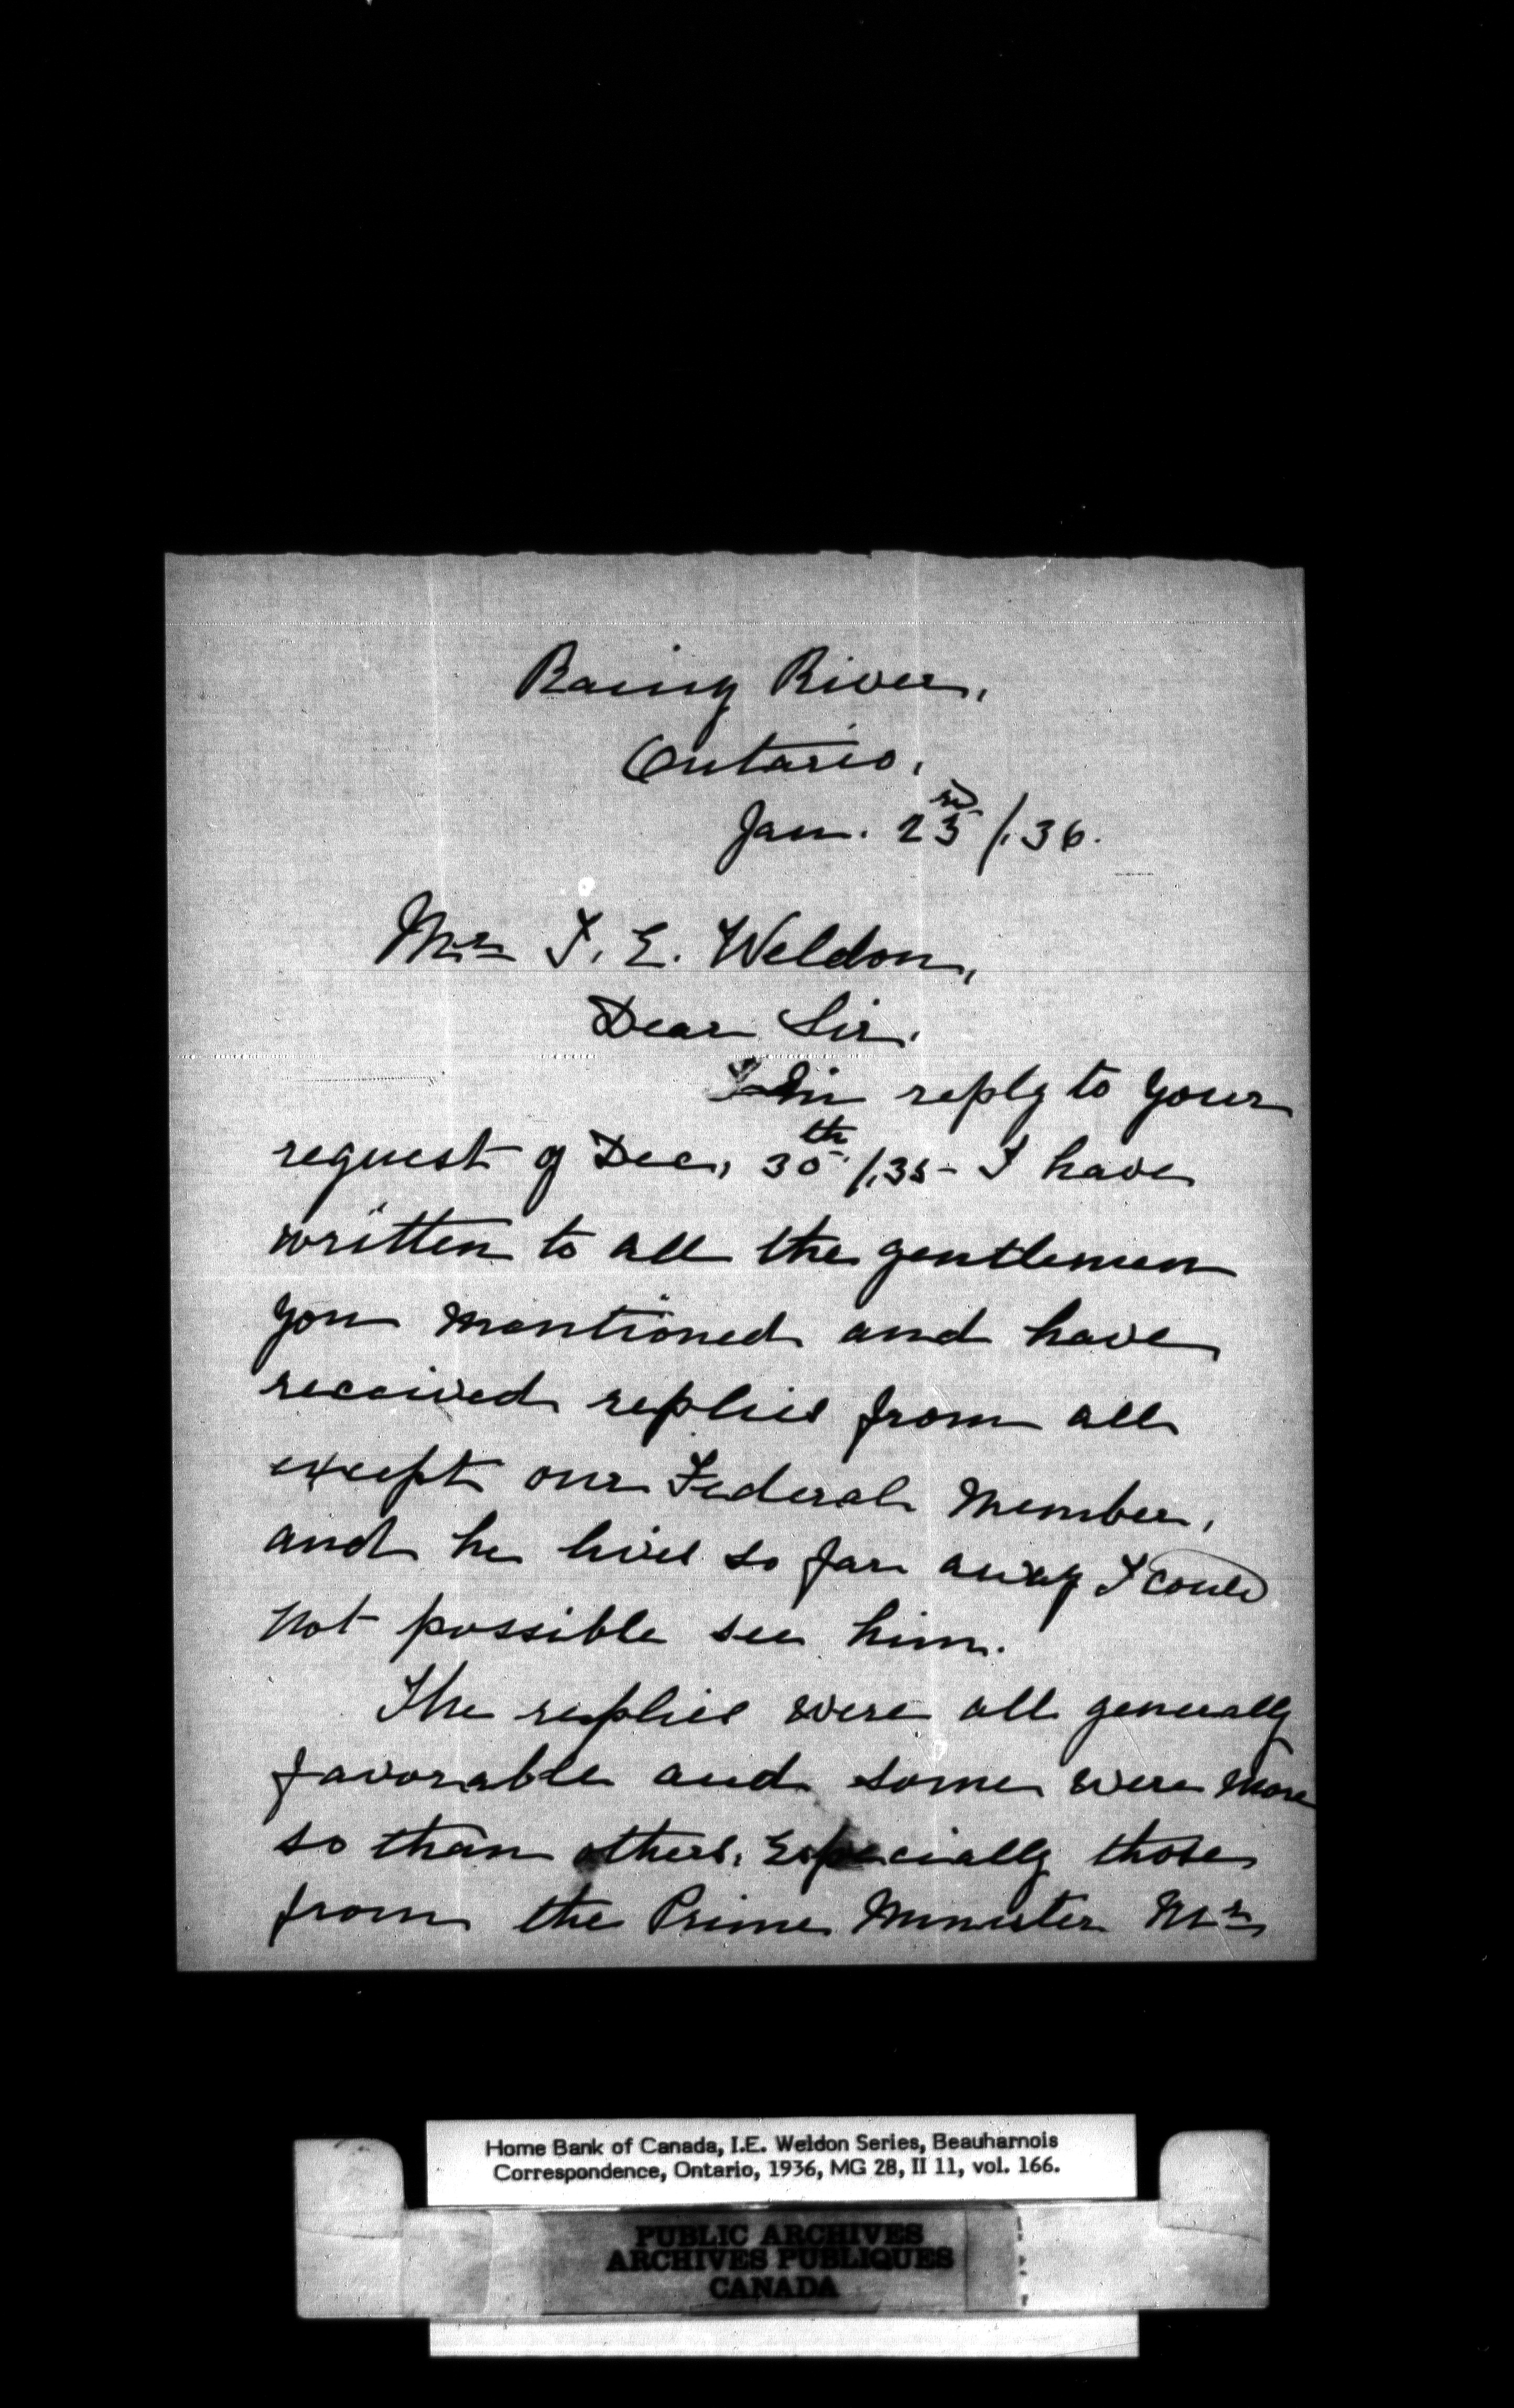 Rainy River,
Ontario,
Jan. 23rd/36.
Mr I. E. Weldon,
Dear Sir.
In reply to your
request of Dec, 30th/35 - I have
written to all the gentlemen
you mentioned and have
received replies from all
except our Federal Member,
and he lives so far away I could
not possible see him.
The replies were all generally
favorable and some were more
so than others, Especially those
from the Prime Minister Mr
Home Bank of Canada, I.E. Weldon Series, Beauharnois
Correspondence, Ontario, 1936, MG 28, II 11, vol. 166.
PUBLIC ARCHIVES
ARCHIVES PUBLIQUES
CANADA